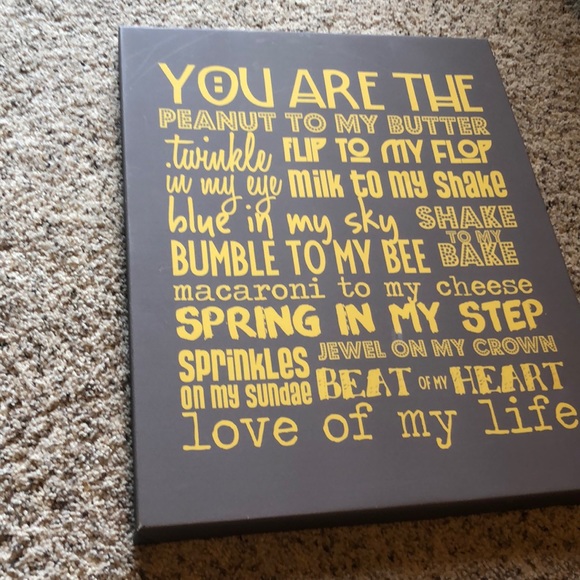 YOU ARE THE
PEANUT TO MY BUTTER
.twinkle
in my eye
FLIP TO MY FLOP
milk to my shake
blue in my sky
SHAKE
TO MY
BAKE
BUMBLE TO MY BEE
macaroni to my cheese
SPRING IN MY STEP
SPRINKLES
ON MY SUNDAE
JEWEL ON MY CROWN
BEAT OF MY HEART
love of my life